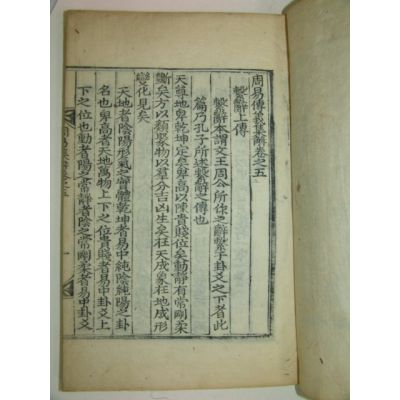 周易傳義集解卷之五
繫辭上傳
繫辭本謂文王周公所作之辭繫于卦爻之下者此
篇乃孔子所述繫辭之傳也
天尊地卑乾坤定矣卑高以陳貴賤位矣動靜有常剛柔
斷矣方以類聚物以羣分吉凶生矣在天成象在地成形
變化見矣
天地者陰陽形氣之實體乾坤者易中純陰純陽之卦
名也卑高者天地萬物上下之位貴賤者易中卦爻上
下之位也動者陽之常靜者陰之常剛柔者易中卦爻